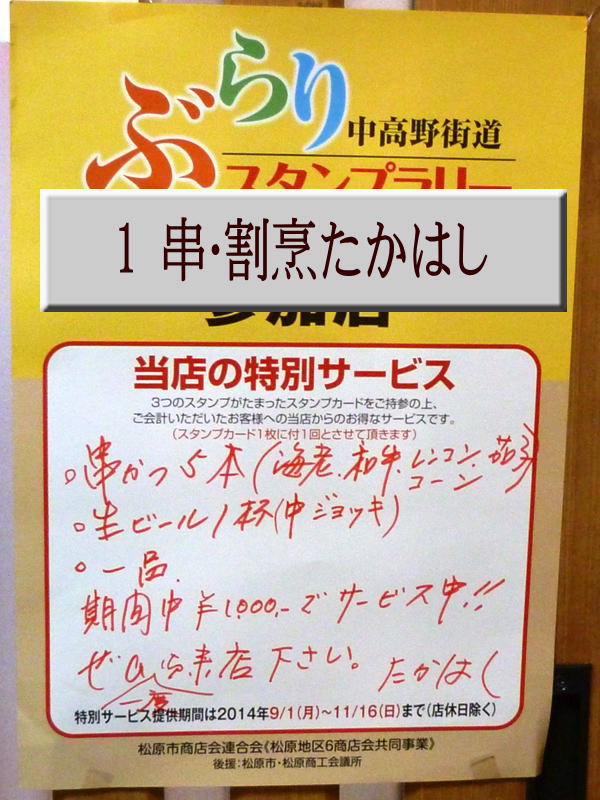 ぶらり
中高野街道
スタンプラリー
1 串・割烹たかはし
参加店
当店の特別サービス
3つのスタンプがたまったスタンプカードをご持参の上、
ご会計いただいたお客様への当店からのお得なサービスです。
(スタンプカード1枚に付1回とさせて頂きます)
○串かつ5本(海老、和牛、レンコン、コーン、茄子)
○生ビール1杯(中ジョッキ)
○一品、
期間中¥1,000.-でサービス中!!
ぜひ御来店下さい。 たかはし
特別サービス提供期間は2014年9/1(月)~11/16(日)まで(店休日除く)
松原市商店会連合会《松原地区6商店会共同事業》
後援:松原市・松原商工会議所